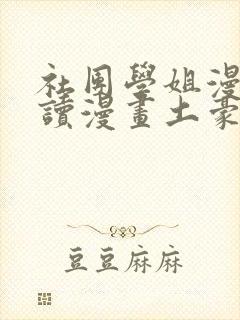 社團學姐漫
讀漫畫土豪
豆豆麻麻